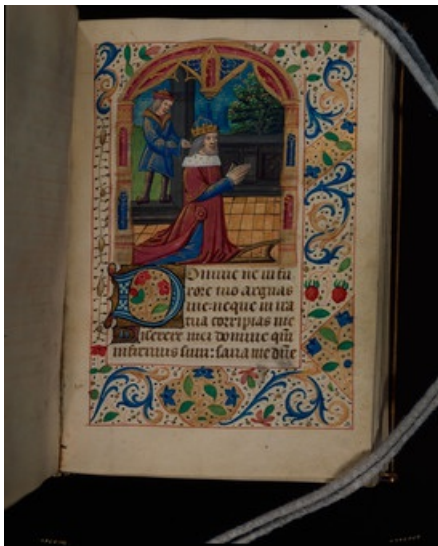 Domine ne in fu
rore tuo arguas
me: neque in ira
tua corripias me
Miserere mei domine qm̄
infirmus sum: sana me dñe